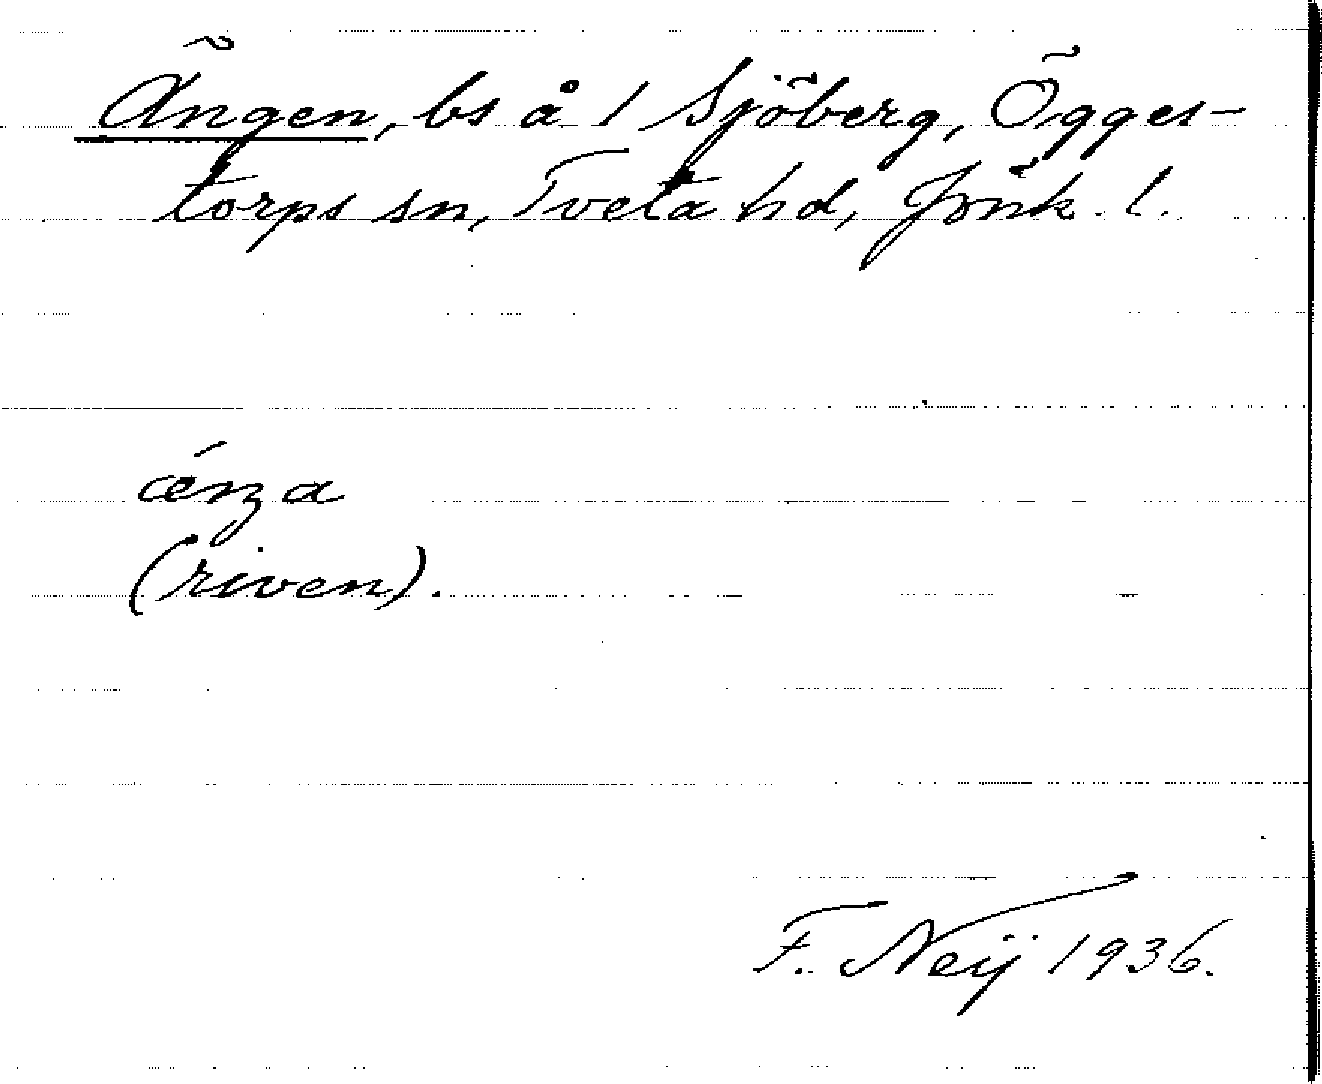 Ängen, bs å 1 Sjöberg, Ögges-
torps sn, Tveta hd, Jönk. l.
æ´nga
(riven).
F. Neij 1936.